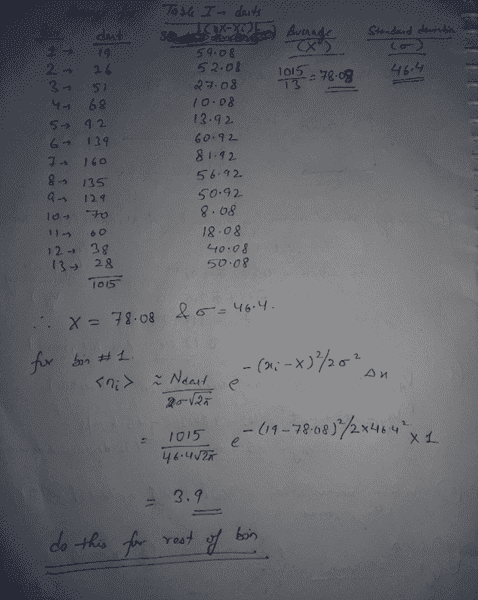 Table I → darts
dart |(X-xi)| Average (X) Standard deviation (σ)
1 → 19 59.08 1015/13 = 78.08 46.4
2 → 26 52.08
3 → 51 27.08
4 → 68 10.08
5 → 92 13.92
6 → 139 60.92
7 → 160 81.92
8 → 135 56.92
9 → 129 50.92
10 → 70 8.08
11 → 60 18.08
12 → 38 40.08
13 → 28 50.08
1015
∴ X = 78.08 & σ = 46.4.
for bin # 1
<ni> ≈ Ndart/σ√2π e^-(xi-X)²/2σ² Δx
= 1015/46.4√2π e^-(19-78.08)²/2×46.4² × 1
= 3.9
do this for rest of bin